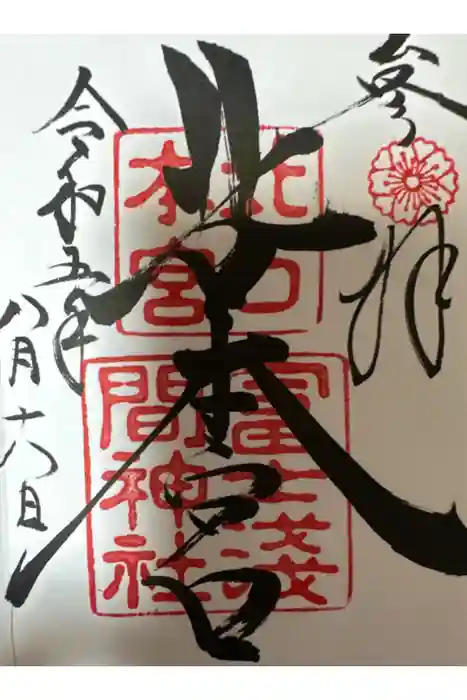 參拜
北口本宮
北口
本宮
冨士浅
間神社
令和五年
八月十六日